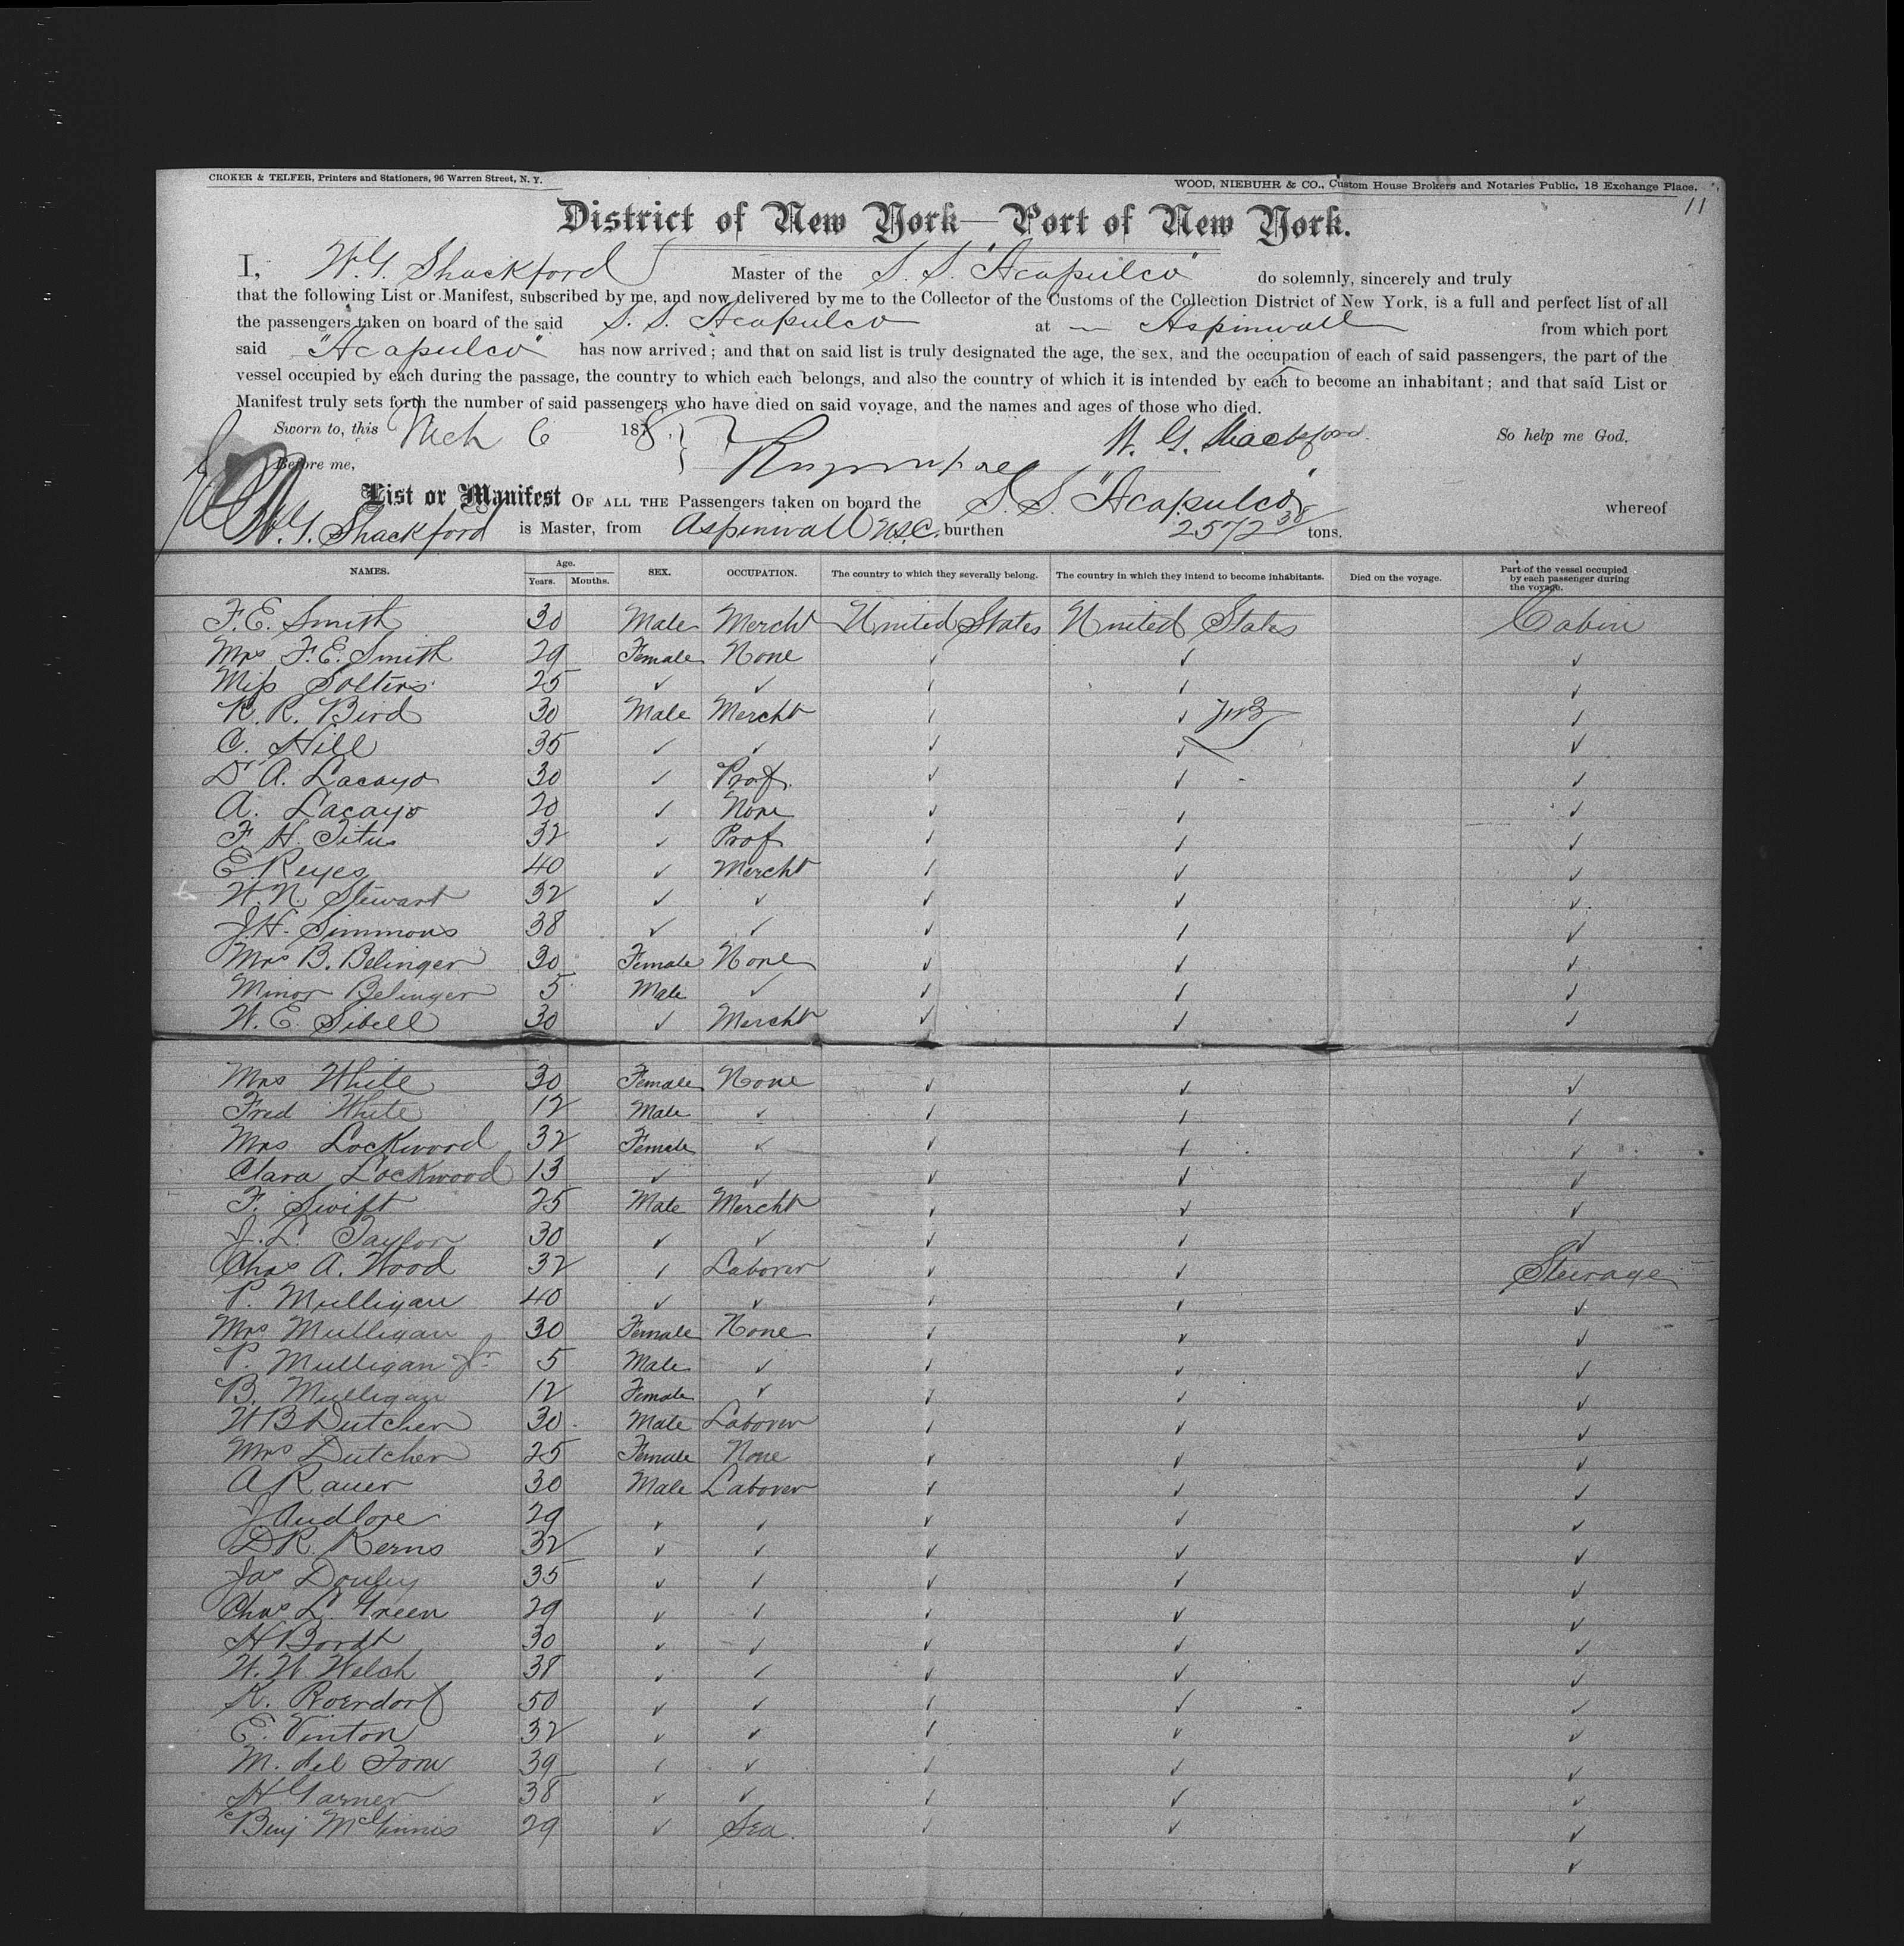 CROKER & TELFER, Printers and Stationers, 96 Warren Street, N. Y. WOOD, NIEBUHR & CO., Custom House Brokers and Notaries Public, 18 Exchange Place.
11
District of New York—Port of New York.
I, W.G. Shackford Master of the S. S. "Acapulco" do solemnly, sincerely and truly
that the following List or Manifest, subscribed by me, and now delivered by me to the Collector of the Customs of the Collection District of New York, is a full and perfect list of all
the passengers taken on board of the said S. S. Acapulco at Aspinwall from which port
said "Acapulco" has now arrived; and that on said list is truly designated the age, the sex, and the occupation of each of said passengers, the part of the
vessel occupied by each during the passage, the country to which each belongs, and also the country of which it is intended by each to become an inhabitant; and that said List or
Manifest truly sets forth the number of said passengers who have died on said voyage, and the names and ages of those who died.
Sworn to, this Mch 6 1878. W. G. Shackford So help me God,
Before me,
List or Manifest OF ALL THE Passengers taken on board the S. S. "Acapulco" whereof
W.G. Shackford is Master, from Aspinwall U.S.C. burthen 2572 38 tons.
NAMES. Age. Years. Months. SEX. OCCUPATION. The country to which they severally belong. The country in which they intend to become inhabitants. Died on the voyage. Part of the vessel occupied by each passenger during the voyage.
F. E. Smith 30 Male Mercht United States United States Cabin
Mrs F. E. Smith 29 Female None ✓ ✓ ✓
Miss Solters 25 ✓ ✓ ✓ ✓ ✓
R. R. Bird 30 Male Mercht ✓ ✓ ✓
C. Hill 35 ✓ ✓ ✓ ✓ ✓
Dr A. Lacayo 30 ✓ Prof. ✓ ✓ ✓
A. Lacayo 20 ✓ None ✓ ✓ ✓
F. H. Titus 32 ✓ Prof ✓ ✓ ✓
E. Reyes 40 ✓ Mercht ✓ ✓ ✓
W. N. Stewart 32 ✓ ✓ ✓ ✓ ✓
J. H. Simmons 38 ✓ ✓ ✓ ✓ ✓
Mrs B. Belinger 30 Female None ✓ ✓ ✓
Minor Belinger 5 Male ✓ ✓ ✓ ✓
W. E. Sibell 30 ✓ Mercht ✓ ✓ ✓
Mrs White 30 Female None ✓ ✓ ✓
Fred White 12 Male ✓ ✓ ✓ ✓
Mrs Lockwood 32 Female ✓ ✓ ✓ ✓
Clara Lockwood 13 ✓ ✓ ✓ ✓ ✓
F. Swift 25 Male Mercht ✓ ✓ ✓
J. L. Taylor 30 ✓ ✓ ✓ ✓ ✓
Chas A. Wood 32 ✓ Laborer ✓ ✓ Steerage
P. Mulligan 40 ✓ ✓ ✓ ✓ ✓
Mrs Mulligan 30 Female None ✓ ✓ ✓
P. Mulligan Jr 5 Male ✓ ✓ ✓ ✓
B. Mulligan 12 Female ✓ ✓ ✓ ✓
W B Dutcher 30 Male Laborer ✓ ✓ ✓
Mrs Dutcher 25 Female None ✓ ✓ ✓
A Rauer 30 Male Laborer ✓ ✓ ✓
J Audlore 29 ✓ ✓ ✓ ✓ ✓
D R. Kerns 32 ✓ ✓ ✓ ✓ ✓
Jas Douley 35 ✓ ✓ ✓ ✓ ✓
Chas L Green 29 ✓ ✓ ✓ ✓ ✓
H Bordt 30 ✓ ✓ ✓ ✓ ✓
W. W. Welch 38 ✓ ✓ ✓ ✓ ✓
K. Roerdorf 50 ✓ ✓ ✓ ✓ ✓
E. Vinton 32 ✓ ✓ ✓ ✓ ✓
M. del 39 ✓ ✓ ✓ ✓ ✓
H Garner 38 ✓ ✓ ✓ ✓ ✓
Benj McGinnis 29 ✓ Sea. ✓ ✓ ✓
✓